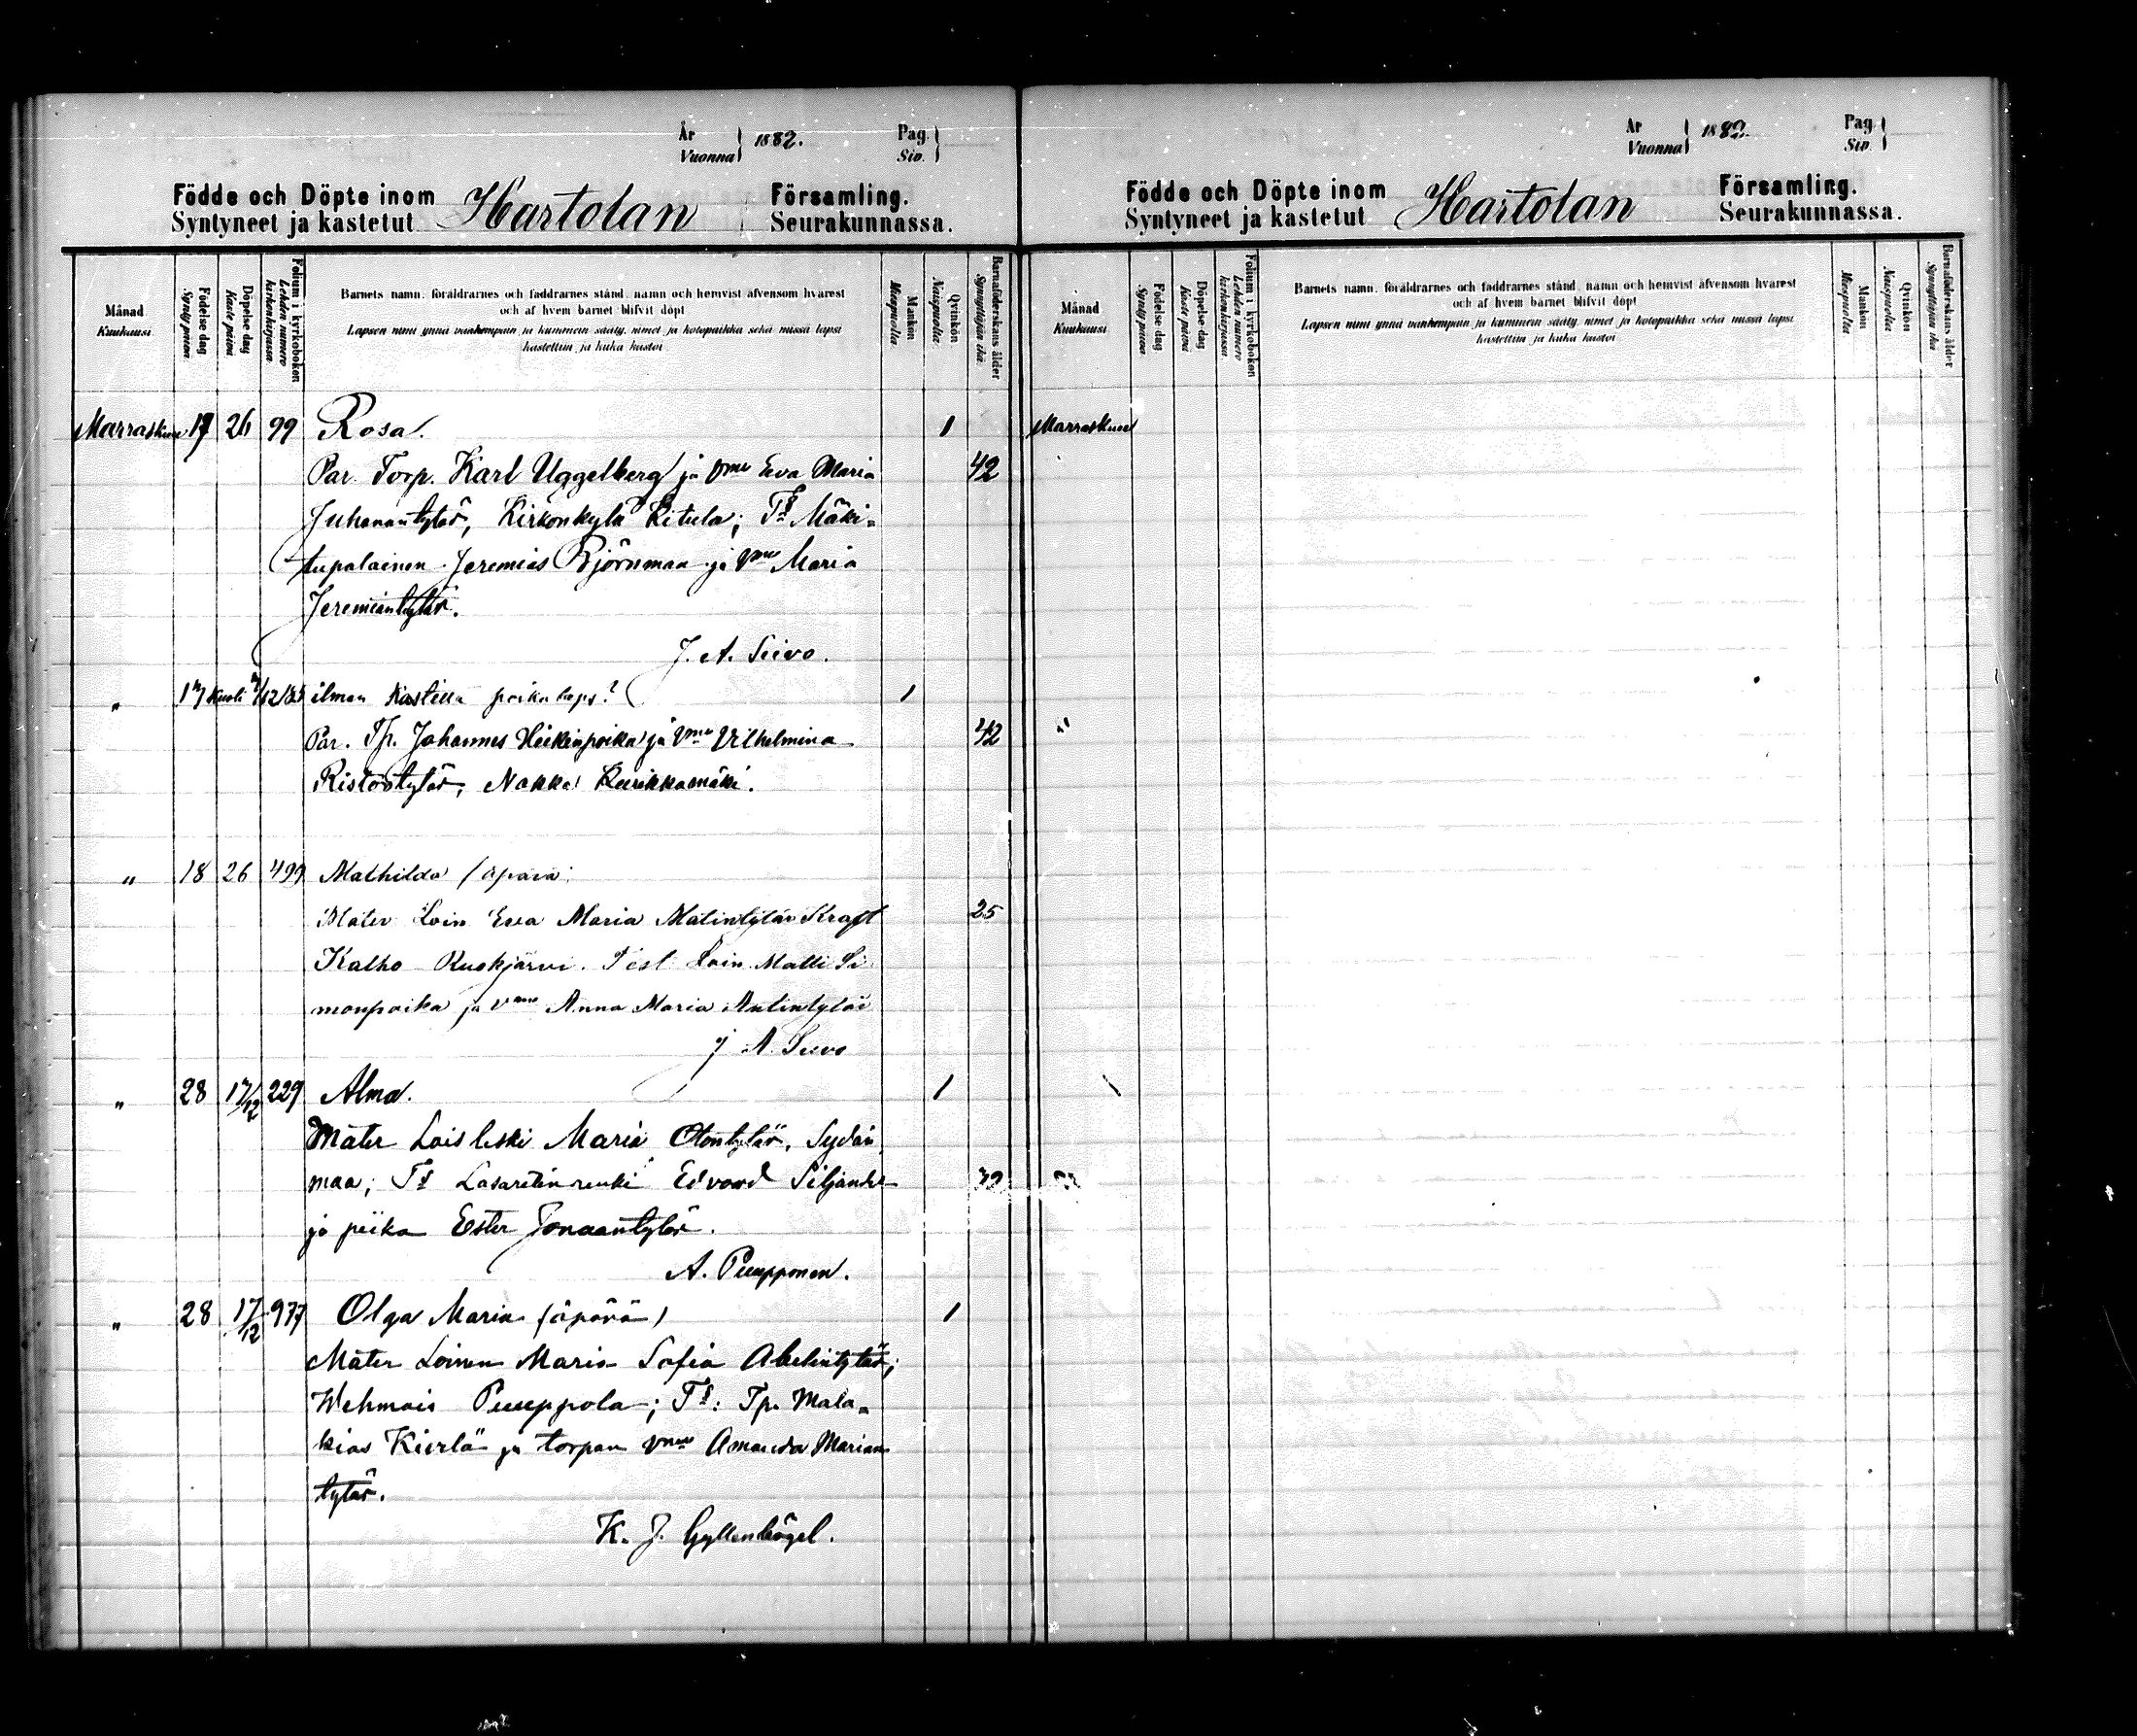 År Vuonna 1882. Pag. Siv.
Födde och Döpte inom Hartolan Församling.
Syntyneet ja kastetut Seurakunnassa.
Månad Kuukausi
Födelse dag Synty päivä
Döpelse dag Kaste päivä
Folium i kyrkoboken Lehden numero kirkonkirjassa
Barnets namn, föräldrarnes och faddrarnes stånd, namn och hemvist äfvensom hvarest
och af hvem barnet blifvit döpt
Lapsen nimi ynnä vanhempain ja kummein sääty, nimet ja kotopaikka sekä missä lapsi
kastettiin ja kuka kastoi
Mankön Miespuolia
Qvinkön Naispuolia
Barnaföderskans ålder Synnyttäjän ikä
Marraskuu 17 26 99 Rosa. 1
Par. Torp. Karl Uggelberg ja vmo Eva Maria 42
Juhanantytär, Kirkonkylä Kitula; Ts Mäki-
tupalainen Jeremias Björnman ja vmo Maria
Jeremiantytär.
J. A. Siivo.
" 17 kuoli ilman kastetta poika laps? 1
Par. Tp. Johannes Heikinpoika ja Vmo Vilhelmina 42
Ristontytär, Nokka Kurikkamäki.
" 18 26 499 Mathilda (äpärä)
Mater Loin Eva Maria Matintytär Kraft 25
Kalho Ruokjärvi. Test Loin Matti Si
monpoika ja vmo Anna Maria Antintytär
J A. Siivo
" 28 17/12 229 Alma. 1
Mater Lois leski Maria Otontytär, Sydän
maa; Ts Lasaretin renki Edvard Siljander
ja piika Ester Jonaantytär.
A. Puupponen.
" 28 17/12 977 Olga Maria (äpärä) 1
Mater Loinen Maria Sofia Abelintytär;
Wehmais Puuppola; Ts: Tp. Mala-
kias Kierlä ja torpan vmo Amanda Marian
tytär.
K. J. Gyllenbögel.
År Vuonna 1882. Pag. Siv.
Födde och Döpte inom Hartolan Församling.
Syntyneet ja kastetut Seurakunnassa.
Månad Kuukausi
Födelse dag Synty päivä
Döpelse dag Kaste päivä
Folium i kyrkoboken Lehden numero kirkonkirjassa
Barnets namn, föräldrarnes och faddrarnes stånd, namn och hemvist äfvensom hvarest
och af hvem barnet blifvit döpt
Lapsen nimi ynnä vanhempain ja kummein sääty, nimet ja kotopaikka sekä missä lapsi
kastettiin ja kuka kastoi
Mankön Miespuolia
Qvinkön Naispuolia
Barnaföderskans ålder Synnyttäjän ikä
Marraskuu
"